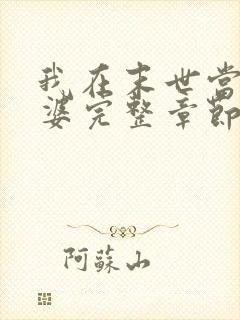 我在末世當
婆完整章節
阿蘇山